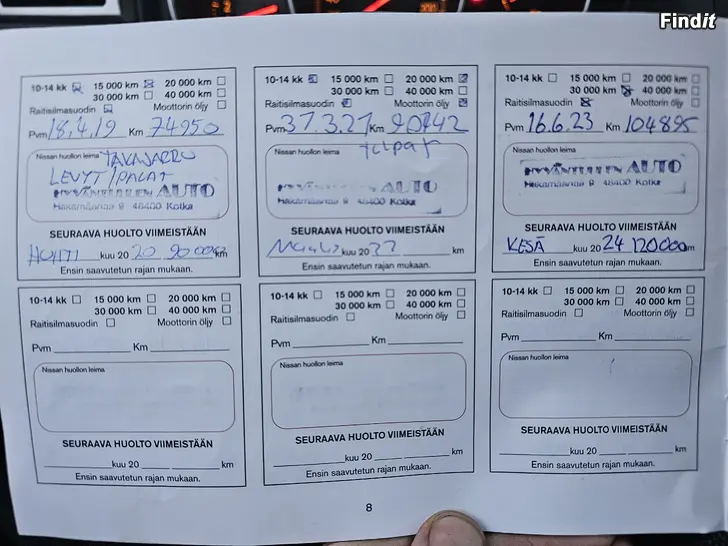 Findit
10-14 kk 15 000 km 20 000 km
30 000 km 40 000 km
Raitisilmasuodin Moottorin öljy
Pvm 18.4.19 Km 74950
Nissan huollon leima TAKAJARRU
LEVYT/PALAT
HYVÄNTUULEN AUTO
Hakamäentie 9 48400 Kotka
SEURAAVA HUOLTO VIIMEISTÄÄN
HUHTI kuu 20 20 90000 km
Ensin saavutetun rajan mukaan.
10-14 kk 15 000 km 20 000 km
30 000 km 40 000 km
Raitisilmasuodin Moottorin öljy
Pvm 31.3.21 Km 90742
Nissan huollon leima
HYVÄNTUULEN AUTO
48400 Kotka
SEURAAVA HUOLTO VIIMEISTÄÄN
Maalis kuu 20 22 km
Ensin saavutetun rajan mukaan.
10-14 kk 15 000 km 20 000 km
30 000 km 40 000 km
Raitisilmasuodin Moottorin öljy
Pvm 16.6.23 Km 104895
Nissan huollon leima
HYVÄNTUULEN AUTO
48400 Kotka
SEURAAVA HUOLTO VIIMEISTÄÄN
KESÄ kuu 20 24 120000 km
Ensin saavutetun rajan mukaan.
10-14 kk 15 000 km 20 000 km
30 000 km 40 000 km
Raitisilmasuodin Moottorin öljy
Pvm Km
Nissan huollon leima
SEURAAVA HUOLTO VIIMEISTÄÄN
kuu 20 km
Ensin saavutetun rajan mukaan.
10-14 kk 15 000 km 20 000 km
30 000 km 40 000 km
Raitisilmasuodin Moottorin öljy
Pvm Km
Nissan huollon leima
SEURAAVA HUOLTO VIIMEISTÄÄN
kuu 20 km
Ensin saavutetun rajan mukaan.
10-14 kk 15 000 km 20 000 km
30 000 km 40 000 km
Raitisilmasuodin Moottorin öljy
Pvm Km
Nissan huollon leima
SEURAAVA HUOLTO VIIMEISTÄÄN
kuu 20 km
Ensin saavutetun rajan mukaan.
8